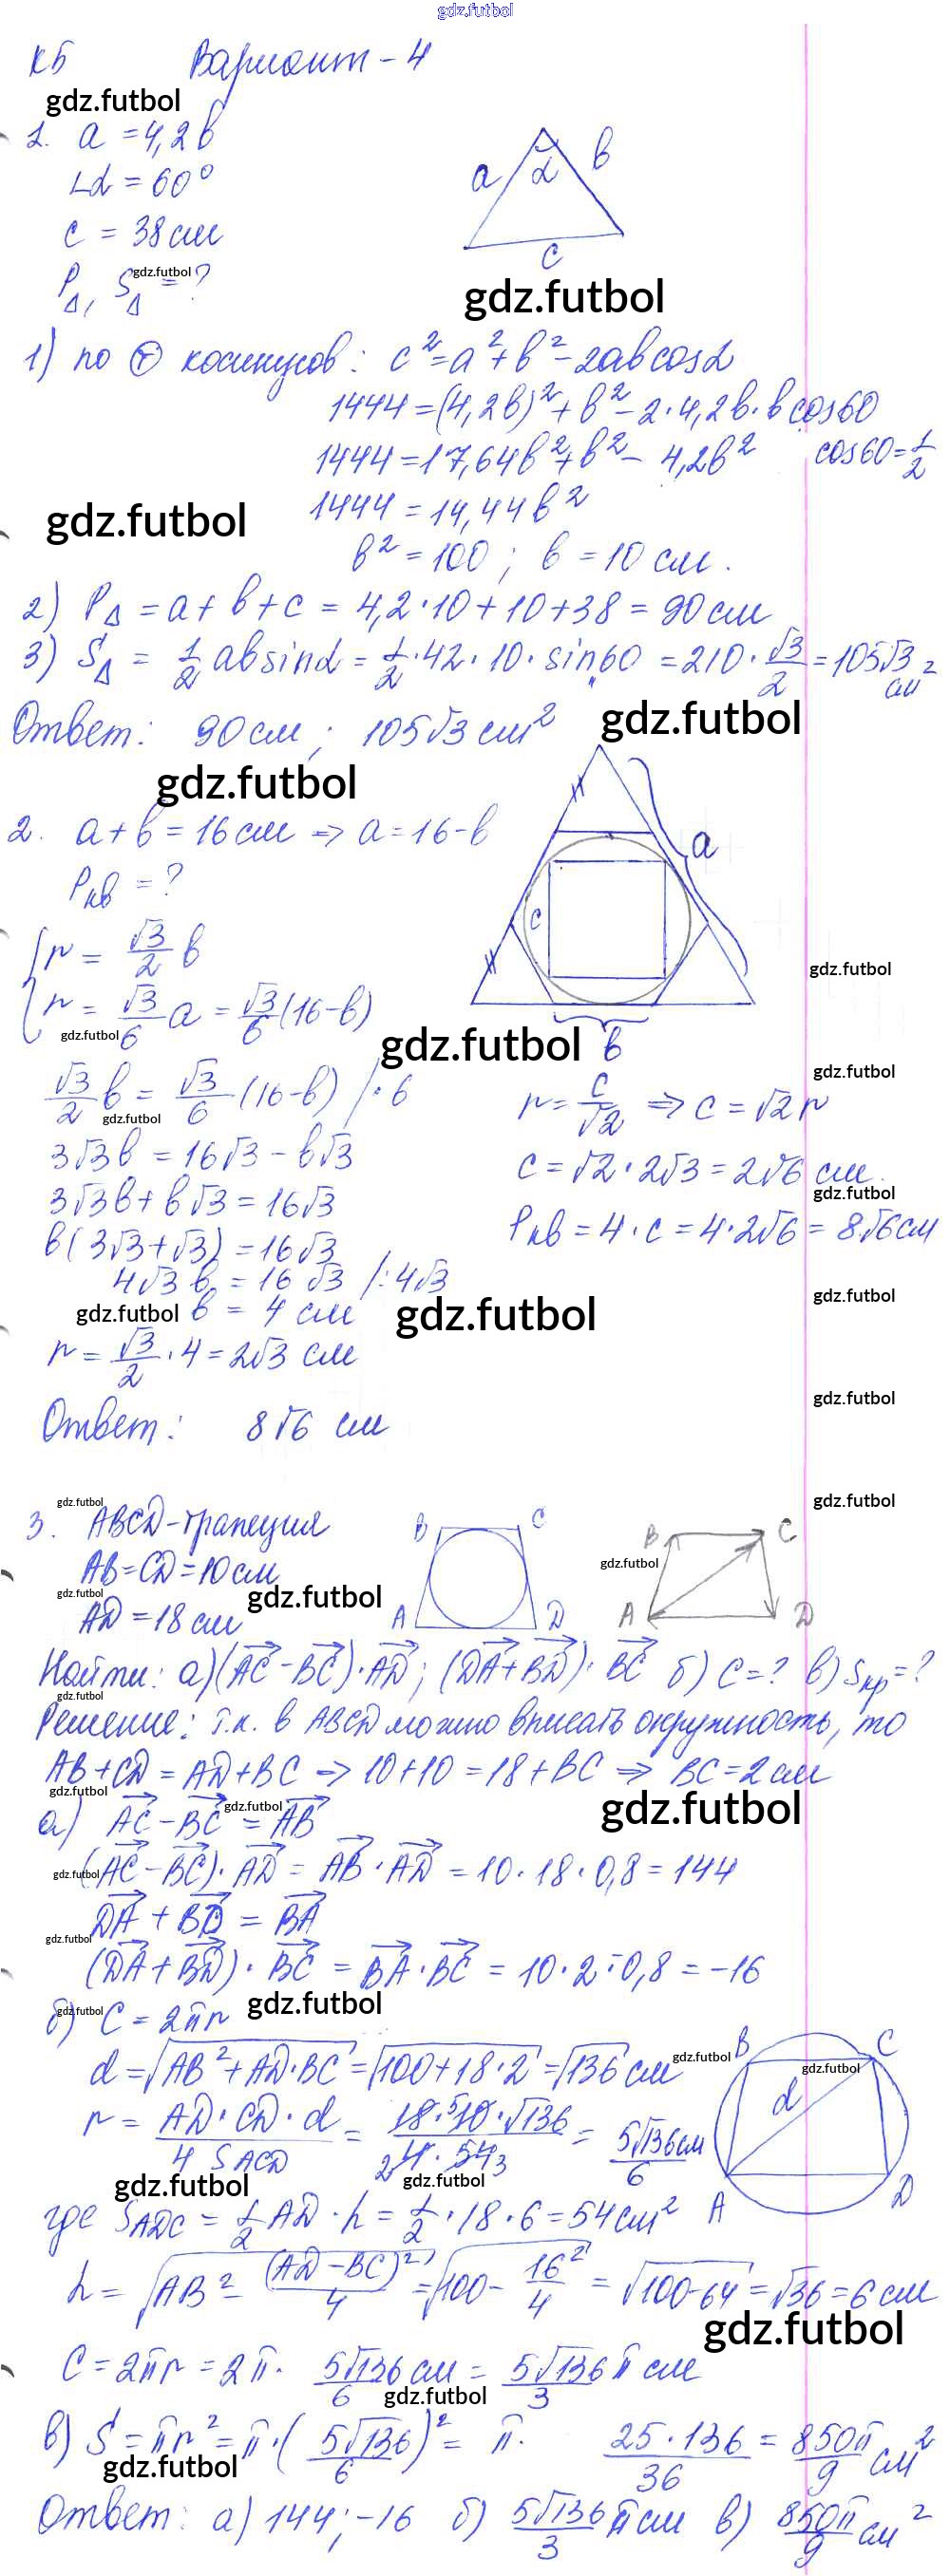 gdz.futbol
К5 Вариант - 4
gdz.futbol
1. a = 4,2b
∠α = 60°
c = 38 см
P△, S△ = ?
gdz.futbol
a α b
c
gdz.futbol
1) по Ⓣ косинусов: c² = a² + b² - 2ab cosα
1444 = (4,2b)² + b² - 2·4,2b·b cos60
1444 = 17,64b² + b² - 4,2b² cos60 = 1/2
1444 = 14,44b²
gdz.futbol
b² = 100 ; b = 10 см.
2) P△ = a + b + c = 4,2·10 + 10 + 38 = 90 см
3) S△ = 1/2 ab sinα = 1/2·42·10·sin60 = 210·√3/2 = 105√3 см²
Ответ: 90 см ; 105√3 см²
gdz.futbol
gdz.futbol
2. a + b = 16 см ⇒ a = 16 - b
a
Pкв = ?
c
{ r = √3/2 b
gdz.futbol
r = √3/6 a = √3/6 (16-b)
gdz.futbol
gdz.futbol b
√3/2 b = √3/6 (16-b) /·6
gdz.futbol
gdz.futbol
r = c/√2 ⇒ c = √2 r
3√3b = 16√3 - b√3
c = √2·2√3 = 2√6 см.
gdz.futbol
3√3b + b√3 = 16√3
Pкв = 4·c = 4·2√6 = 8√6 см
b(3√3+√3) = 16√3
4√3 b = 16√3 /:4√3
gdz.futbol
gdz.futbol b = 4 см
gdz.futbol
r = √3/2·4 = 2√3 см
gdz.futbol
Ответ: 8√6 см
gdz.futbol
gdz.futbol
3. ABCD - трапеция
B C
B C
AB = CD = 10 см
gdz.futbol
gdz.futbol
gdz.futbol
AD = 18 см
A D
A D
Найти: а) (AC⃗ - BC⃗)·AD⃗ ; (DA⃗ + BD⃗)·BC⃗ б) C = ? в) Sкр = ?
gdz.futbol
Решение: т.к. в ABCD можно вписать окружность, то
AB + CD = AD + BC ⇒ 10 + 10 = 18 + BC ⇒ BC = 2 см
gdz.futbol
gdz.futbol
gdz.futbol
а) AC⃗ - BC⃗ = AB⃗
gdz.futbol
(AC⃗ - BC⃗)·AD⃗ = AB⃗·AD⃗ = 10·18·0,8 = 144
DA⃗ + BD⃗ = BA⃗
gdz.futbol
(DA⃗ + BD⃗)·BC⃗ = BA⃗·BC⃗ = 10·2·-0,8 = -16
gdz.futbol
gdz.futbol
б) C = 2πr
d = √(AB² + AD·BC) = √(100 + 18·2) = √136 см
gdz.futbol
B C
gdz.futbol
d
A D
r = AD·CD·d / 4 S ACD = 18·⁵10·√136 / ₂4·54₃ = 5√136 см / 6
gdz.futbol
gdz.futbol
где S ADC = 1/2 AD·h = 1/2·18·6 = 54 см²
h = √(AB² - (AD - BC)²/4) = √(100 - 16²/4) = √(100-64) = √36 = 6 см
gdz.futbol
C = 2πr = 2π·5√136/6 см = 5√136/3 π см
gdz.futbol
в) S = πr² = π·(5√136/6)² = π·25·136/36 = 850π/9 см²
gdz.futbol
Ответ: а) 144; -16 б) 5√136/3 π см в) 850π/9 см²